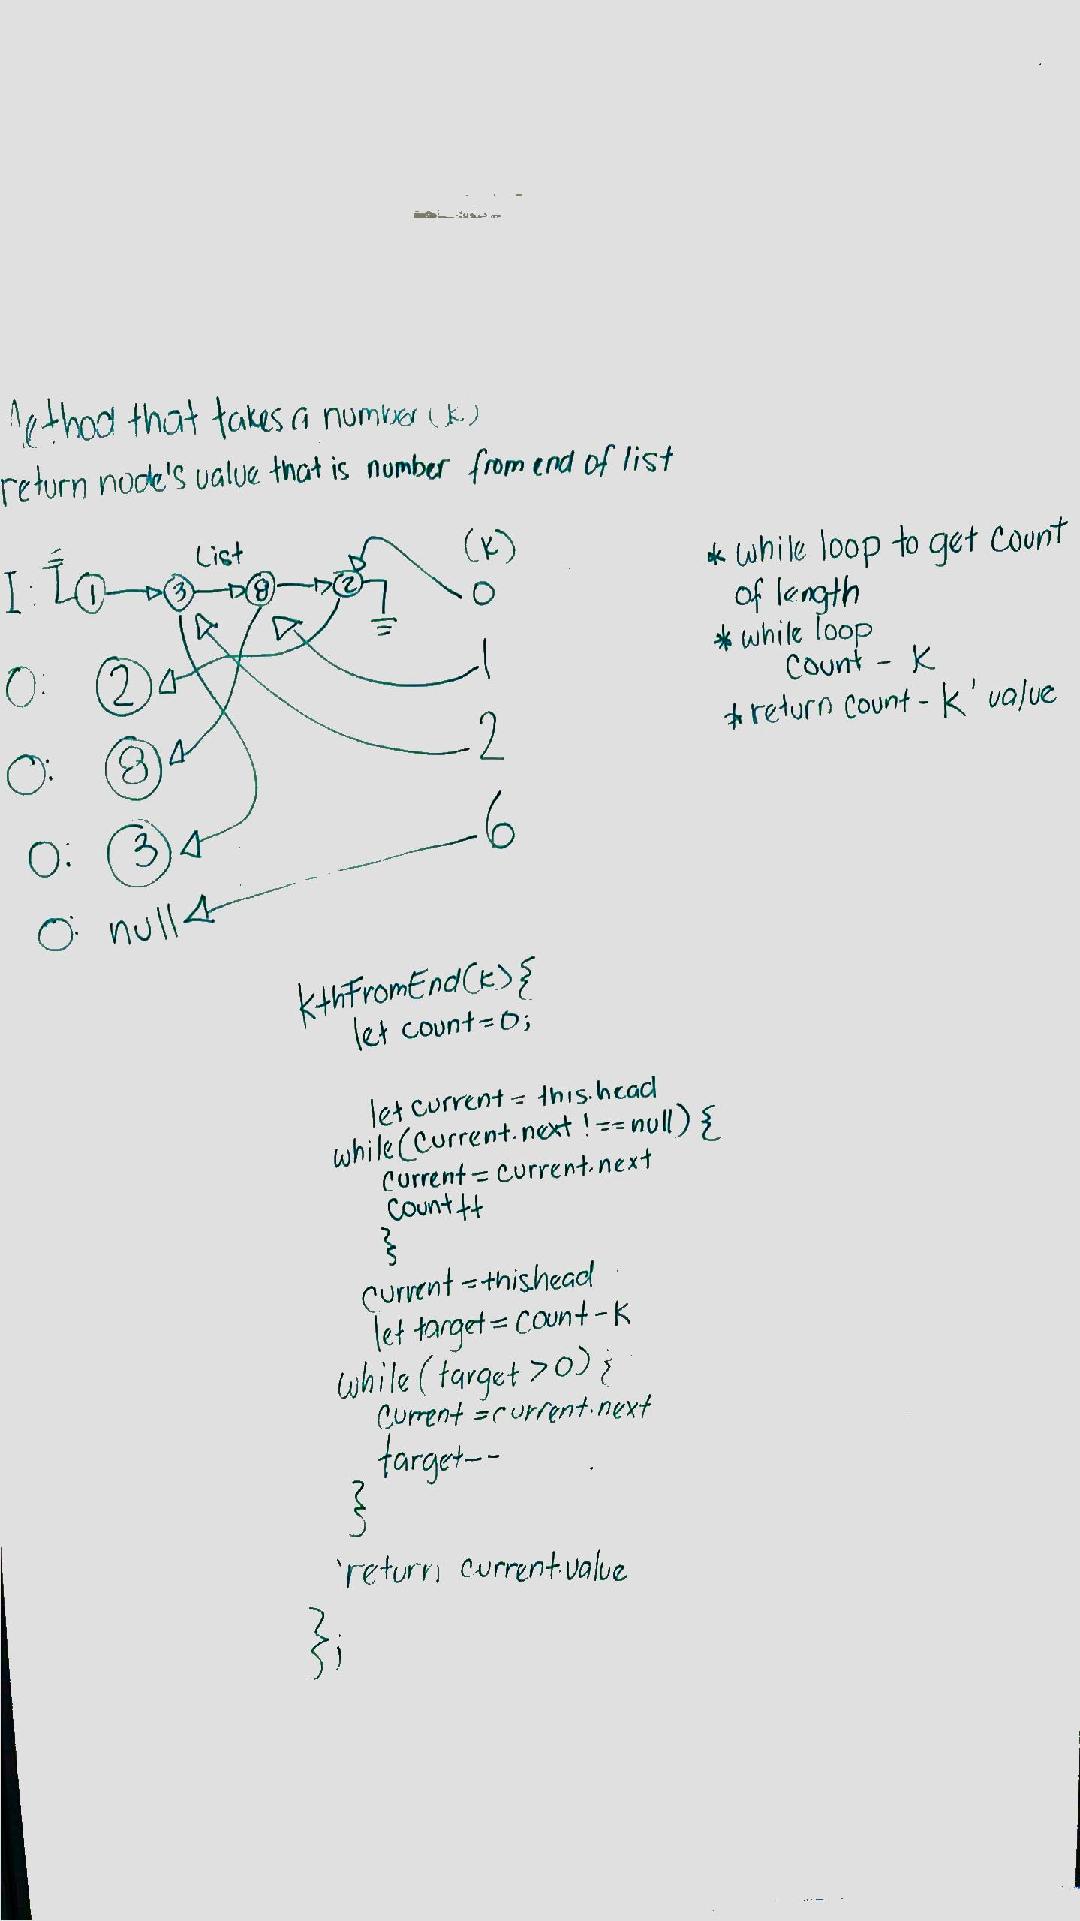 Method that takes a number (k)
return node's value that is number from end of list
List
(k)
I: 1 3 8 2
0
O: 2
1
O: 8
2
O: 3
6
O: null
* while loop to get count
of length
* while loop
count - k
* return count - k' value
kthFromEnd(k){
let count=0;
let current = this.head
while(current.next !== null) {
current = current.next
count++
}
current = this.head
let target = count - k
while (target > 0) {
current = current.next
target--
}
return current.value
};